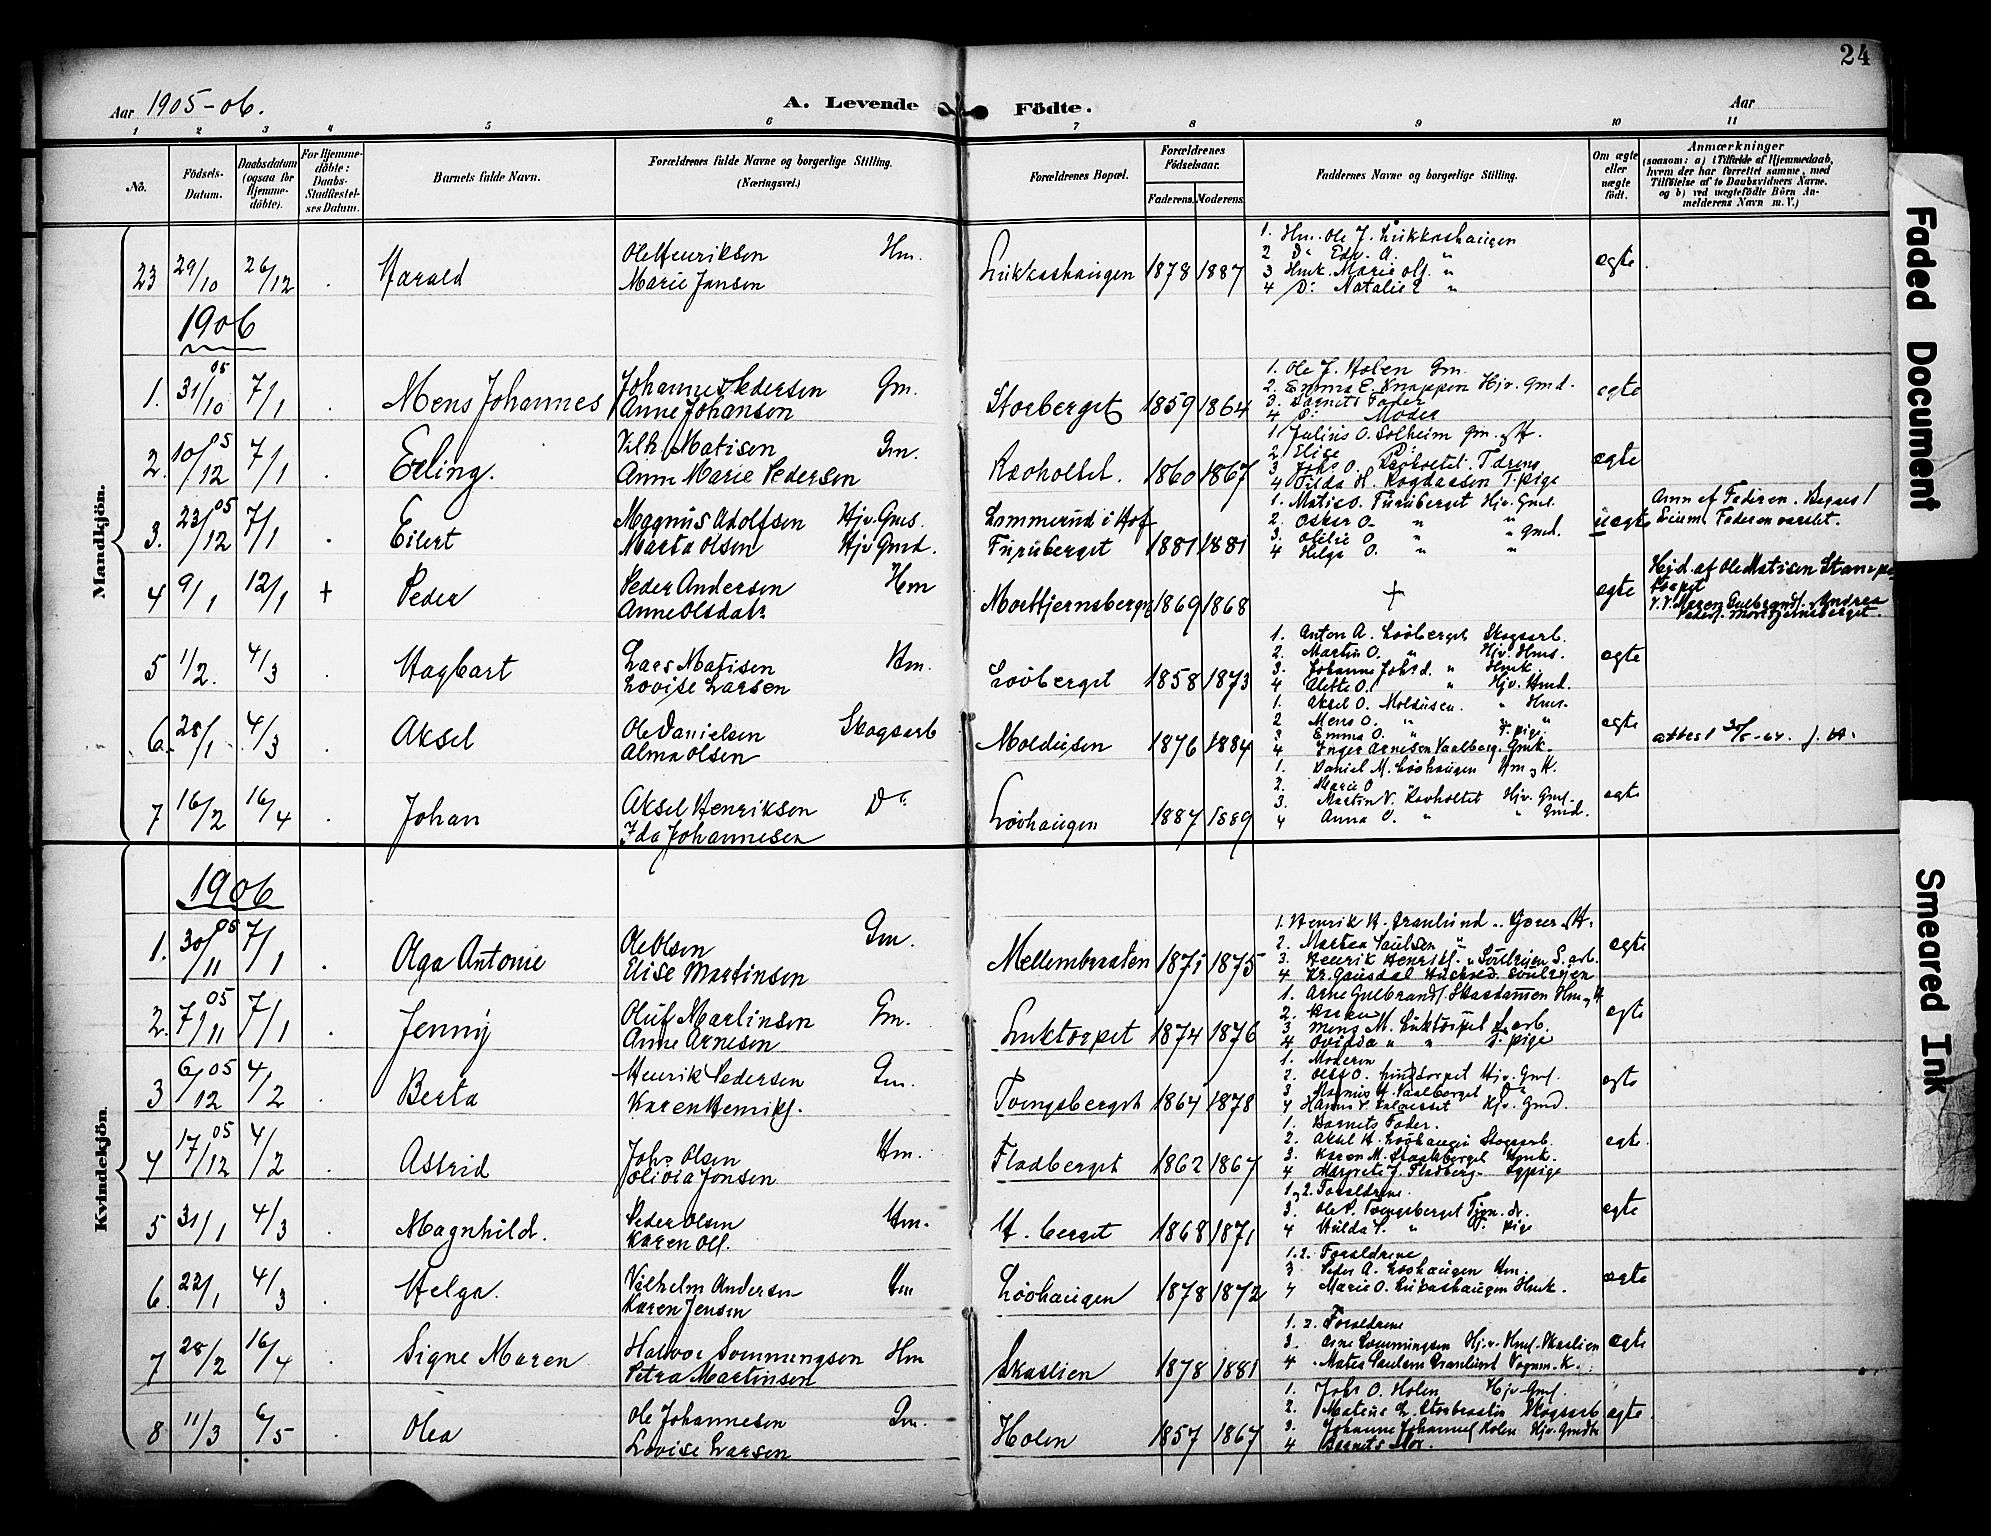 24
Aar 1905-06.
A. Levende Födte.
Aar
1 2 3 4 5 6 7 8 9 10 11
Nò.
Födsels-Datum.
Daabsdatum (ogsaa for Hjemme-döbte).
For Hjemme-döbte: Daabs-Stadfæstel-ses Datum.
Barnets fulde Navn.
Forældrenes fulde Navne og borgerlige Stilling.
(Næringsvei.)
Forældrenes Bopæl.
Forældrenes Födselsaar.
Faderens. Moderens.
Faddernes Navne og borgerlige Stilling.
Om ægte eller uægte födt.
Anmærkninger
(saasom: a) i Tilfælde af Hjemmedaab, hvem der har forrettet samme, med Tilföielse af to Daabsvidners Navne, og b) ved uægtefödte Börn An-melderens Navn m. V.)
Mandkjön.
23 29/10 26/12 . Harald
Ole Henriksen Hm.
Marie Jansen
Lukkashaugen 1878 1887
1. Hm. Ole J. Lukkashaugen
2 Do Edv. A. "
3 Hmk. Marie Olf. "
4 Do Natalie "
ægte
1906
1. 31/10 05 7/1 . Mens Johannes
Johannes Pedersen Gm.
Anne Johansen
Storberget 1859 1864
1. Ole J. Holen Gm.
2. Emma E. Knappen Hjv. Gmd.
3. Barnets Fader
4 Do Moder
ægte
2. 10/12 05 7/1 . Erling.
Vilh. Matisen Gm.
Anne Marie Pedersen
Ravholtet. 1860 1867
1 Julius O. Solheim Gm. & H.
2 Elise Do
3 Johs O. Ravholtet
4 Tilda H. T. pige
ægte
3. 23/12 05 7/1 . Eilert
Magnus Adolfsen Hjv. Gms.
Marta Olsen Hjv Gmd.
Lommerud i Hof
Furuberget 1881 1881
1. Matis O. Furuberget Hjv. Gms.
2. Oskar O. " "
3. Otilie O. " " Gmd.
4 Helga O. " "
uægte
Anm af Faderen.
4 9/1 12/1 + Peder
Peder Andersen Hm
Anne Olsdatr
Mortjernsberget 1869 1868
+
ægte
Hjd. af Ole Matisen
V. V. Maren Gulbrandsf. Andrea
Mortjernsberget.
5 1/2. 4/3 . Hagbart
Lars Matisen Hm.
Lovise Larsen
Lövberget 1858 1873
1. Anton A. Lövberget Skogsarb.
2. Martin O. " Hjv. Hms.
3. Johanne Johsd. " Hmk.
4 Alette O. " Hjv. Hmd.
ægte
6. 28/1 4/3 . Aksel
Ole Danielsen Skogsarb
Alma Olsen
Moldusen 1876 1884
1. Aksel O. Moldusen. " Hms.
2 Mens O. " "
3 Emma O. " T. pige.
4 Inger Arnesen Vaalberg. Gmk.
ægte
attest
7 16/2 16/4 . Johan
Aksel Henriksen Do
Ida Johannesen
Lövhaugen 1887 1889
1. Daniel M. Lövhaugen Hm & H.
2. Marie O
3. Martin V. Ravholtet Hjv. Gms.
4 Anna O. " " Gmd.
ægte
Kvindekjön.
1906
1. 30/11 05 7/1 . Olga Antonie
Ole Olsen Gm.
Elise Martinsen
Mellembraaten 1871 1875
1. Henrik H. Granlund
2. Martea Paulsen "
3. Henrik Henriksf.
4 Kr. Gausdal
ægte
2. 7/11 05 7/1 . Jenny
Oluf Martinsen Gm.
Anne Arnesen
Luktorpet 1874 1876
1. Arne Gulbrandsf. Skasdammen Hm & H
2. Karen
3 Mens M. Luktorpet S. arb.
4 Ovidia " " T. pige
ægte
3 6/12 05 4/2 . Berta
Henrik Pedersen Gm.
Karen Henriksf.
Tvengsberget 1864 1878
1. Moderen
2. Oluf O. Hjv. Gms.
3 Magnus H. Vaalberget Do
4 Hjv. Gmd.
ægte
4 17/12 05 4/2 . Astrid
Johs Olsen Hm.
Olivia Jonsen
Fladberget 1862 1867
1. Barnets Fader.
2. Aksel H. Lövhaugen Skogsarb.
3. Karen M. Hmk.
4 Margrete J. Fladberg
ægte
5 31/1 4/3 . Magnhild.
Peder Olsen Hm.
Karen Olf.
H. berget 1868 1871
1 & 2. Forældrene.
3. Ole P. Tvengsberget Tjen. dr.
4 Hulda P. " T. pige
ægte
6. 22/1 4/3 . Helga.
Vilhelm Andersen Hm
Karen Jensen
Lövhaugen 1878 1872
1. 2. Forældrene
3 Peder A. Lövhaugen Hm.
4 Marie O. Lukashaugen Hmk.
ægte
7 28/2 16/4 . Signe Maren
Halvor Sommingsen Hm
Petra Martinsen
Skaslien 1878 1881
1. 2. Forældrene
3. Arne Sommingsen Hjv. Hms. Skaslien
4 Mates Paulsen Granlund
ægte
8 11/3 6/5 . Olea
Ole Johannesen Gm.
Lovise Larsen
Holen 1857 1867
1. Johs O. Holen Hjv Gms.
2. Mateus L. Storbraaten Skogsarb.
3. Johanne Johannesf Holen Hjv. Gmdtr
4 Barnets Mor.
ægte
Faded Document
Smeared Ink